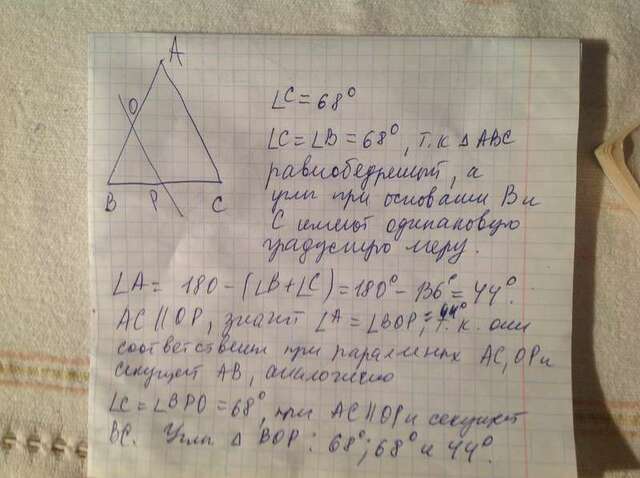 A
O
B
P
C
∠C = 68°
∠C = ∠B = 68°, т.к. △ABC
равнобедренный, а
углы при основании B и
C имеют одинаковую
градусную меру.
∠A = 180 - (∠B + ∠C) = 180° - 136° = 44°.
AC || OP, значит ∠A = ∠BOP = 44°, т.к. они
соответственны при паралельных AC, OP и
секущей AB, аналогично
∠C = ∠BPO = 68° при AC || OP и секущей
BC. Углы △BOP: 68°, 68° и 44°.